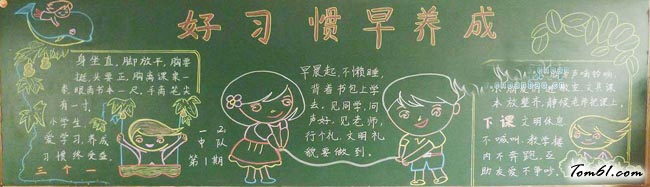 好习惯早养成
身坐直，脚放平，胸要
挺，头要正，胸离课桌一
拳，眼离书本一尺，手离笔尖
有一寸。
小学生，
爱学习，养成
习惯终受益。
三个一
一、2
中队
第1期
早晨起，不懒睡，
背着书包上学
去。见同学，问
声好。见老师，
行个礼。文明礼
貌要做到。
声响铃响，
教室，文具课
本放整齐，静候老师把课上。
下课 文明休息
不喊叫，教学楼
内不奔跑，互
助友爱不争吵。
Tom61.com